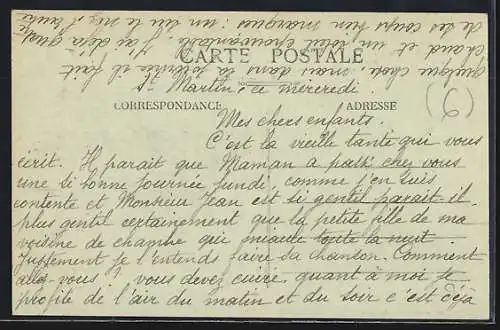 CARTE POSTALE
CORRESPONDANCE
ADRESSE
(6)
St Martin, ce mercredi.
Mes chers enfants.
C'est la vieille tante qui vous
écrit. Il parait que Maman a passé chez vous
une si bonne journée lundi, comme j'en suis
contente et Monsieur Jean est si gentil parait-il
plus gentil certainement que la petite fille de ma
voisine de chambre qui miaule toute la nuit.
Justement je l'entends faire sa chanson. Comment
allez-vous ? vous devez cuire, quant à moi je
profite de l'air du matin et du soir c'est déjà
quelque chose, mais dans la journée il fait
chaud et un soleil épouvantable, j'ai déjà quelq
de ses coups bien marqués : un sur le nez, l'autre